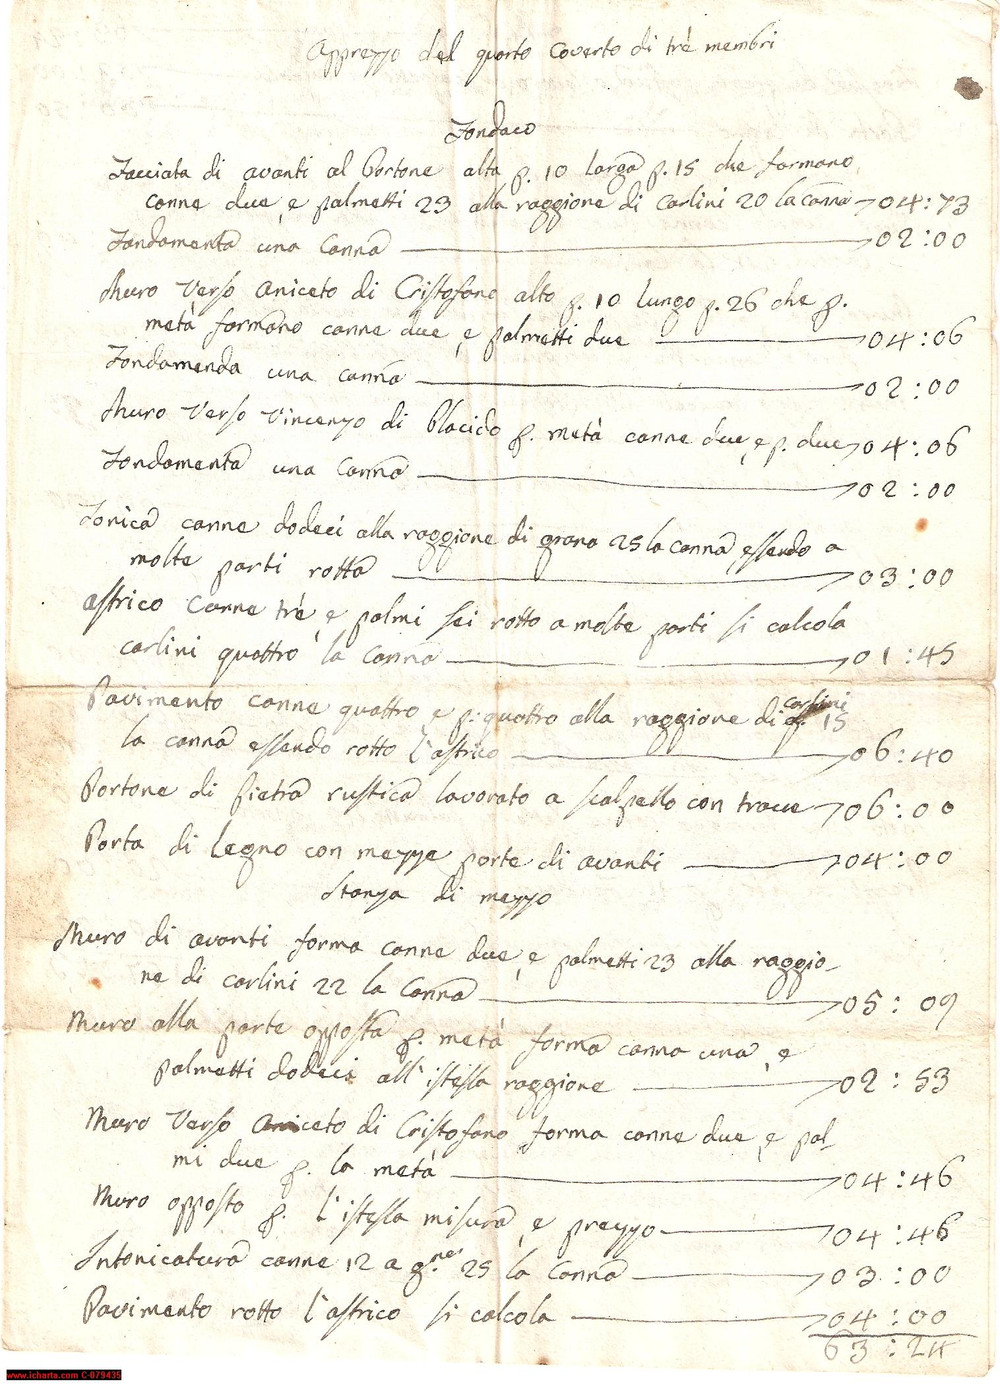 Apprezzo del quarto coverto di trè membri
Fondaco
Facciata di avanti al Portone alta p. 10 larga p. 15 che formano
canne due, e palmetti 23 alla raggione di Carlini 20 la canna 04:73
Fondamenta una Canna 02:00
Muro Verso Aniceto di Cristofano alto p. 10 lungo p. 26 che p.
metà formano canne due, e palmetti due 04:06
Fondamenda una canna 02:00
Muro Verso Vincenzo di Placido p. metà canne due, e p. due 04:06
Fondamenta una Canna 02:00
Tonica canne dodeci alla raggione di grana 25 la canna essendo a
molte parti rotta 03:00
Astrico Canne trè, e palmi sei rotto a molte parti si calcola
carlini quattro la Canna 01:45
Pavimento canne quattro e p: quattro alla raggione di carlini 15
la canna essendo rotto l'astrico 06:40
Portone di pietra rustica lavorato a scalpello con trave 06:00
Porta di Legno con mezze porte di avanti 04:00
Stanza di mezzo
Muro di avanti forma canne due, e palmetti 23 alla raggio-
ne di carlini 22 la Canna 05:09
Muro alla parte opposta p. metà forma canna una, e
palmetti dodeci all'istessa raggione 02:53
Muro Verso Aniceto di Cristofano forma canne due, e pal-
mi due p. la metà 04:46
Muro opposto p. l'istessa misura, e prezzo 04:46
Intonicatura canne 12 a g.ne 25 la Canna 03:00
Pavimento rotto l'astrico si calcola 04:00
63:24
www.icharta.com C-079435